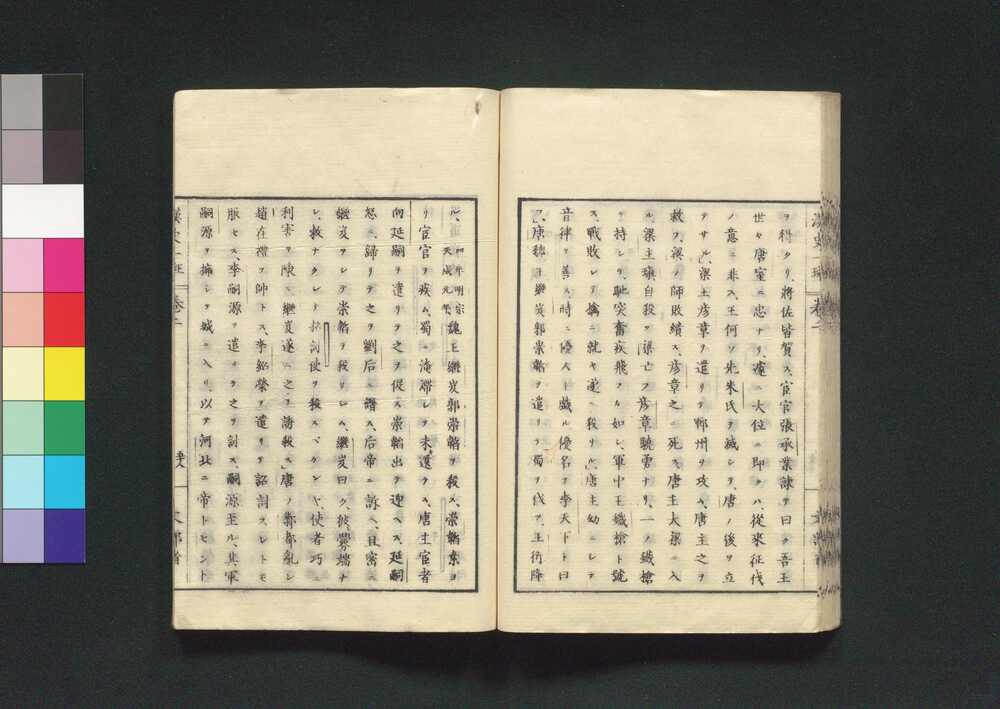 ヲ得タリ、將佐皆賀ス、宦官張承業諫テ曰ク吾王
世々唐室ニ忠ナリ、遽ニ大位ニ即クハ、從來征伐
ノ意ニ非ス、王何ソ先朱氏ヲ滅シテ、唐ノ後ヲ立
テサル、梁主彦章ヲ遣リテ鄆州ヲ攻ム、唐主之ヲ
救フ、梁ノ師敗績ス、彦章之ニ死ス、唐主大梁ニ入
ル、梁主瑱自殺ス、梁亡フ、彦章驍勇ナリ、一ノ鐵槍
ヲ持シテ、馳突奮疾飛フカ如シ、軍中王鐵槍ト號
ス、戰敗レテ擒ニ就キ遂ニ殺サル、唐主幼ニシテ
音律ヲ善ス、時ニ優人ト戯ル優名ヲ李天下ト曰
フ、唐魏王繼岌郭崇韜ヲ遣リテ蜀ヲ伐ツ、王衍降
ル、天成元年明宗魏王繼岌郭崇韜ヲ殺ス、崇韜素ヨ
リ宦官ヲ疾ム、蜀ニ淹滞シテ未還ラス、唐主宦者
向延嗣ヲ遣リテ之ヲ促ス崇韜出テ迎ヘス、延嗣
怒ニ歸リテ之ヲ劉后ニ譖ス、后帝ニ訴ヘ、且密ニ
繼岌ヲシテ崇韜ヲ殺サシム、繼岌曰ク、彼、釁端ナ
シ、救ナクシテ招討使ヲ殺スベケンヤ、使者巧ニ
利害ヲ陳ス、繼岌遂ニ之ヲ誘殺ス、唐ノ鄴都亂レ
趙在禮ヲ帥トス、李紹榮ヲ遣リテ詔討スレトモ
服セス、李嗣源ヲ遣リテ之ヲ討ス、嗣源至ル、其軍
嗣源ヲ擁シテ城ニ入リ、以テ河北ニ帝トセント
漢史一班 卷二
文部省